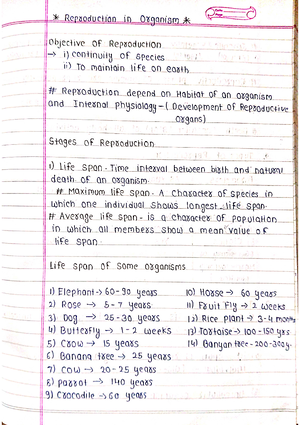 * Reproduction in Organism *
Objective of Reproduction
→ i) continuity of species
ii) To maintain life on earth
# Reproduction depend on Habitat of an organism
and Internal physiology - ( Development of Reproductive
Organs)
Stages of Reproduction
1) Life span - Time interval between birth and natural
death of an organism.
# Maximum life span - A Character of species in
which one individual shows longest life span.
# Average life span - is a character of population
in which all members show a mean value of
life span
Life span of Some organisms
1) Elephant → 60-90 years
2) Rose → 5-7 years
3) Dog → 25-30 years
4) Butterfly → 1-2 weeks
5) Crow → 15 years
6) Banana tree → 25 years
7) Cow → 20-25 years
8) Parrot → 140 years
9) Crocodile → 60 years
10) Horse → 60 years
11) Fruit Fly → 2 weeks
12) Rice plant → 3-4 months
13) Tortoise → 100-150 yrs
14) Banyan tree - 200-300y.